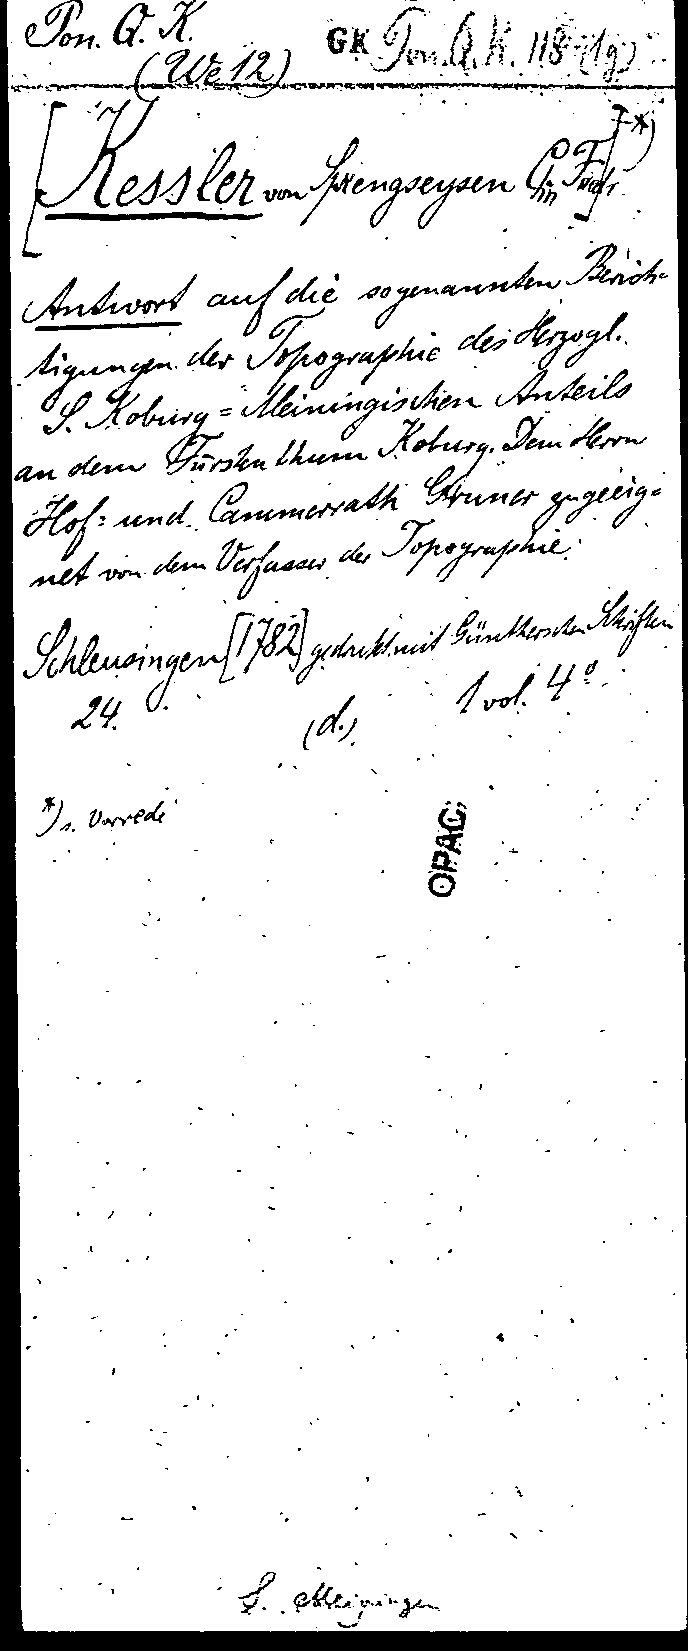 Pon. Q. K.
(We 12)
GK Pon. Q. K. 118 (1g)
[Kessler von Sprengseysen Ch F ]*)
Antwort auf die sogenannten Berich-
tigungen der Topographie des Herzogl.
S. Koburg=Meiningischen Anteils
an dem Fürstenthum Koburg. Dem Herrn
Hof= und Cammerrath Gruner zugeeig=
net von dem Verfasser der Topographie.
Schleusingen [1782] gedruckt mit Güntherschen Schriften
24. (d.) 1 vol. 4°
*) s. Vorrede
OPAC
S. Meiningen